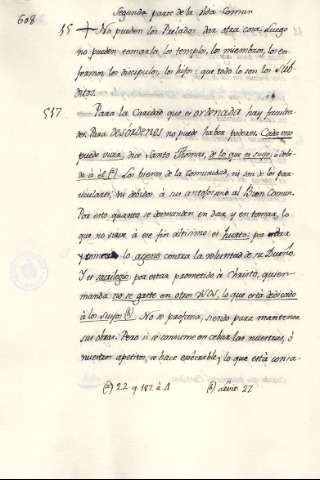 608
Segunda parte de la Vida Comun
15 No pueden los Prelados dar otra cosa. Luego
no pueden tomarla, los templos, los miembros, los en-
fermos, los discipulos, los hijos; que todo lo son los SUB
DITOS.
517. Para la Caridad que es ORDENADA hay facultad
Para DESORDENES no puede haber poderes. Cada uno
puede usar, dice Santo Thomas, de lo que es suyo, ó debi-
do á el. Los bienes de la Comunidad, ni son de los par-
ticulares, ni debidos á sus antojos sino al Bien Comun.
Por esto quanto se desmanden en dar, y en tomar, lo
que no sirve á ese fin altisimo es hurto: por
y lo ageno contra la voluntad de su Dueño.
Y es sacrilegio por estar prometido á Christo, quien
manda no se gaste en otros USOS, lo que está dedicado
á los suyos. No se profana, siendo para mantener
sus obras. Pero si se consume en cebar las nuestras, ó
nuestros apetitos, se hace execrable, y lo que está consa-
2.2. q. 27